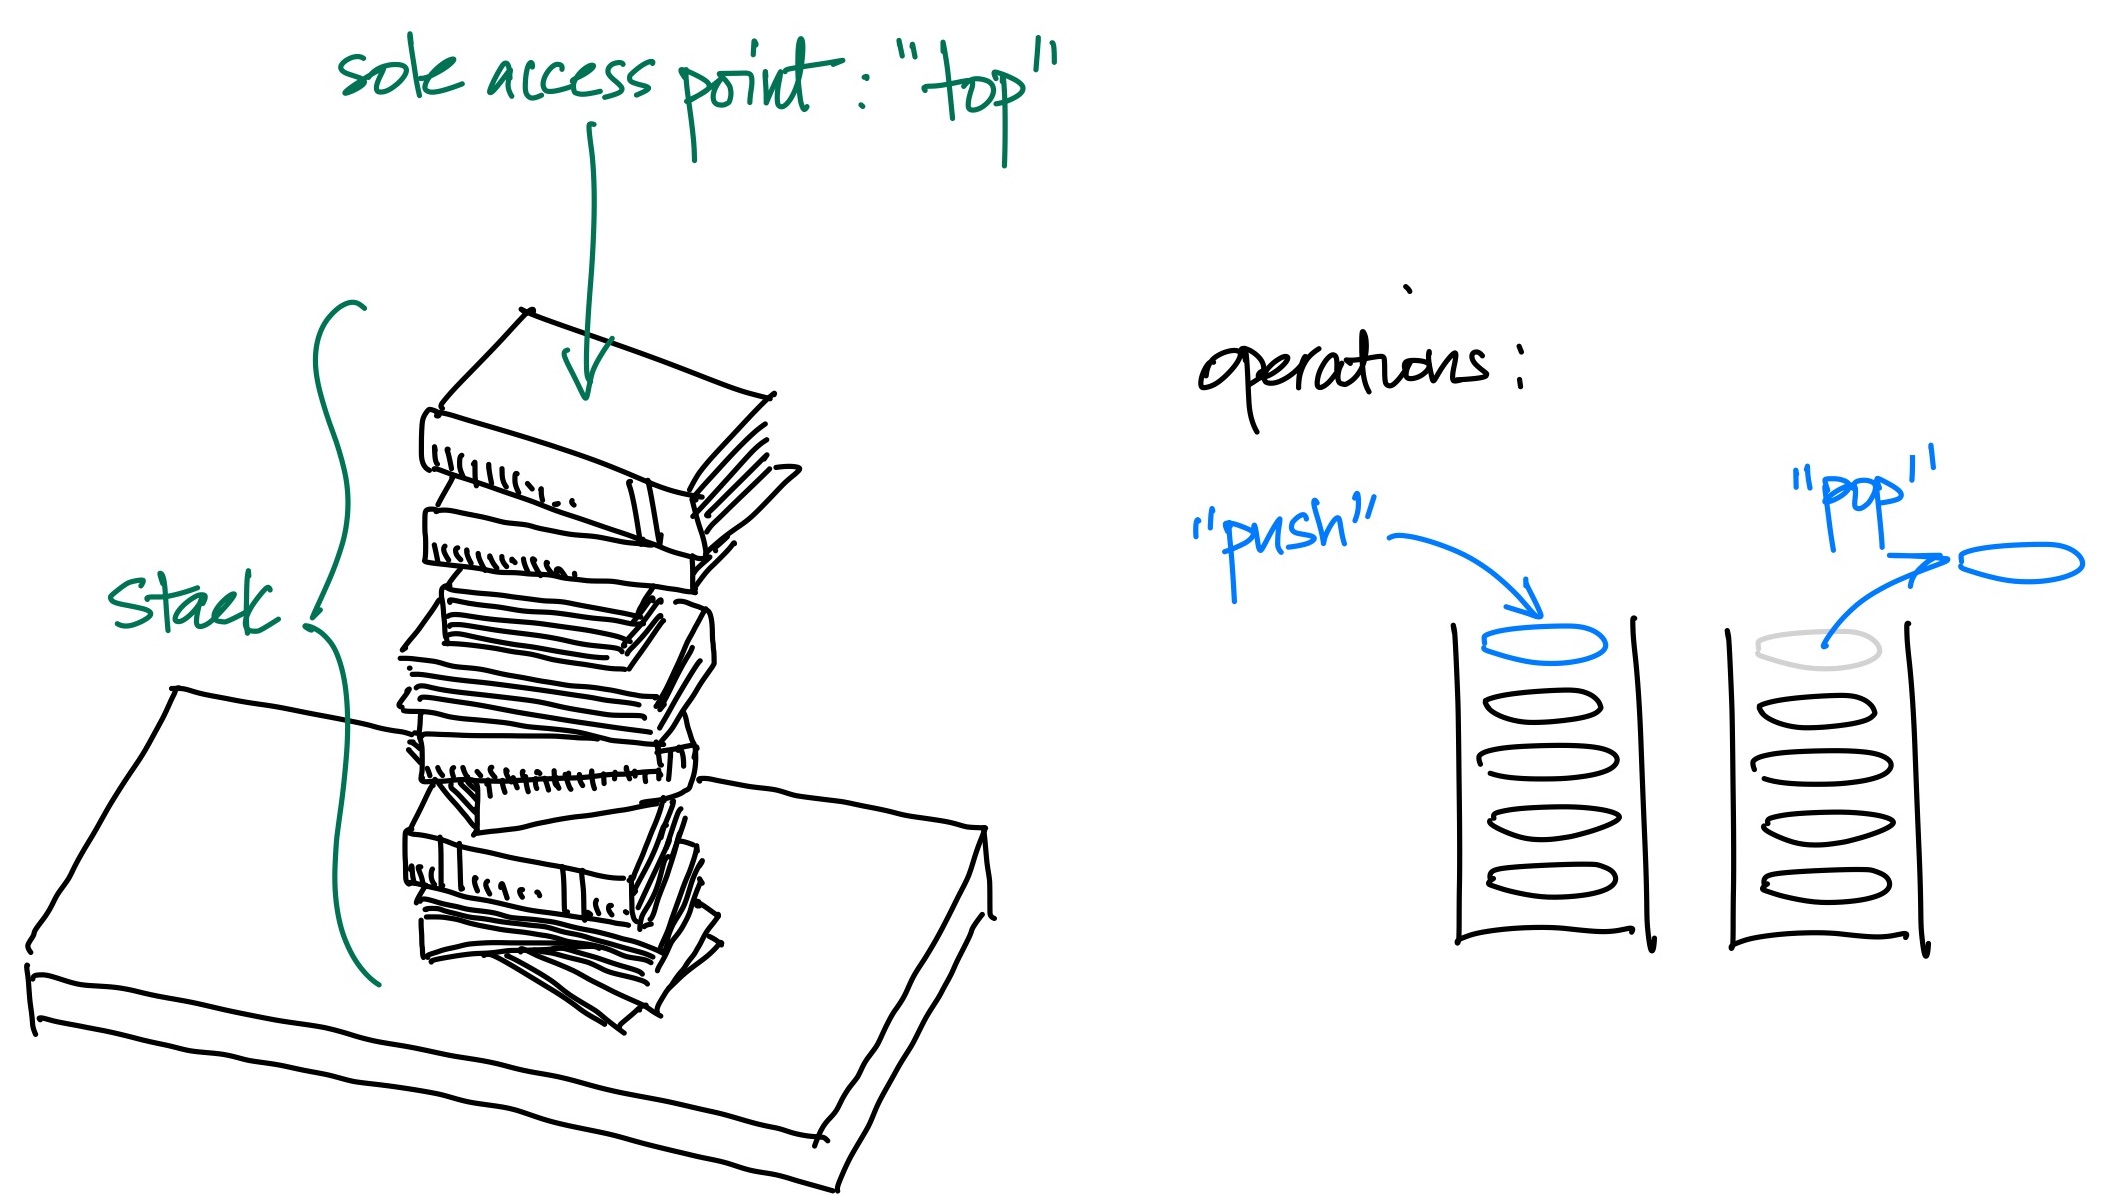 sole access point : "top"
stack
operations :
"push"
"pop"